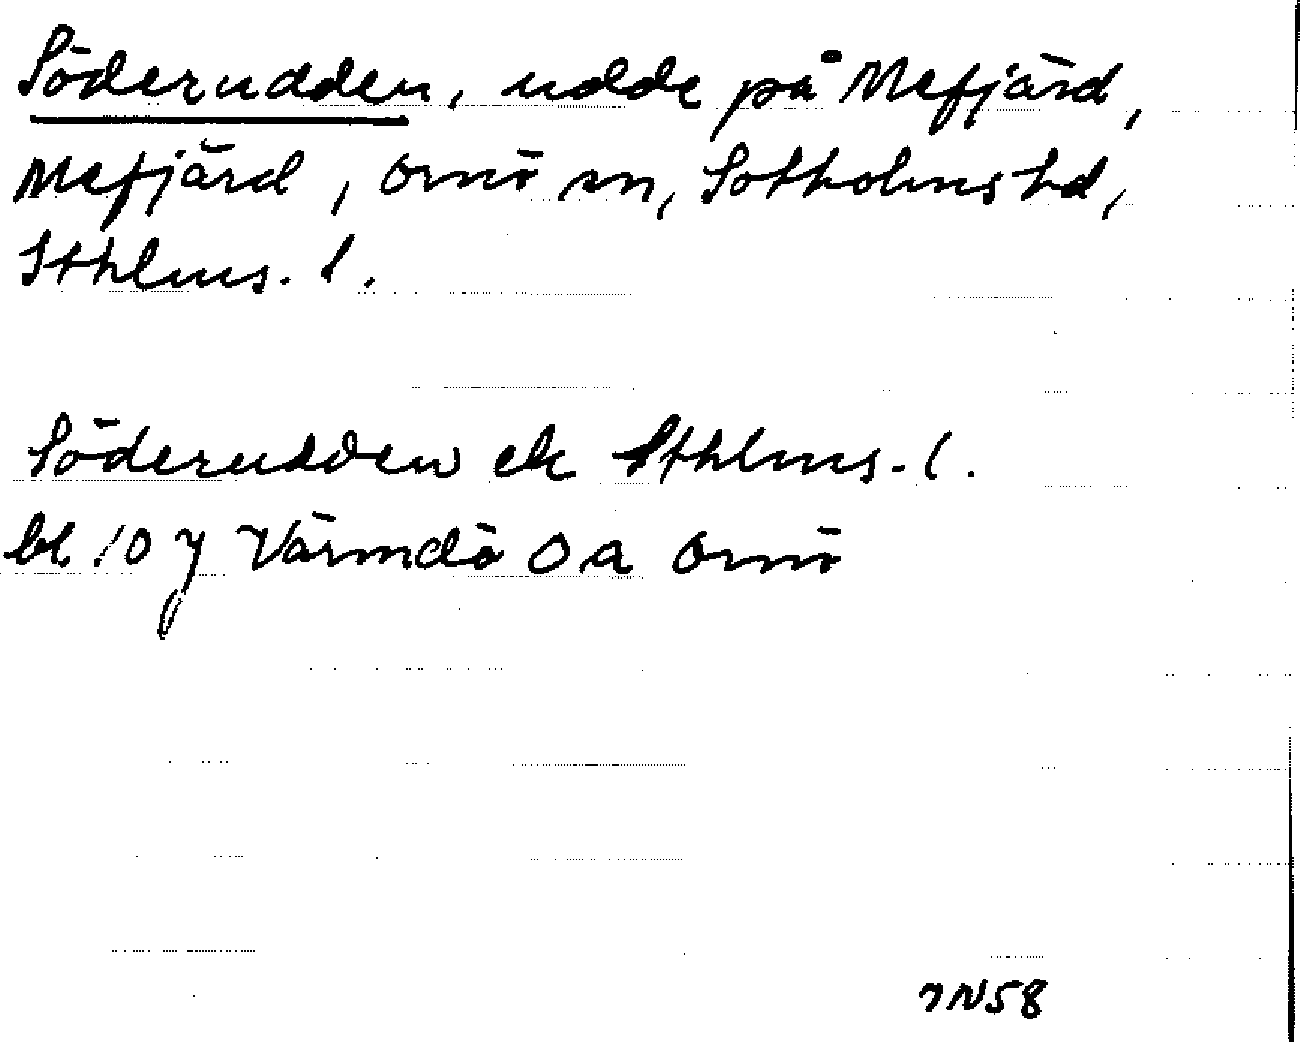 Söderudden, udde på Mefjärd,
Mefjärd, Ornö sn, Sotholms hd,
Sthlms. l.
Söderudden ek Sthlms. l.
bl 10 Värmdö O a Ornö
7N58